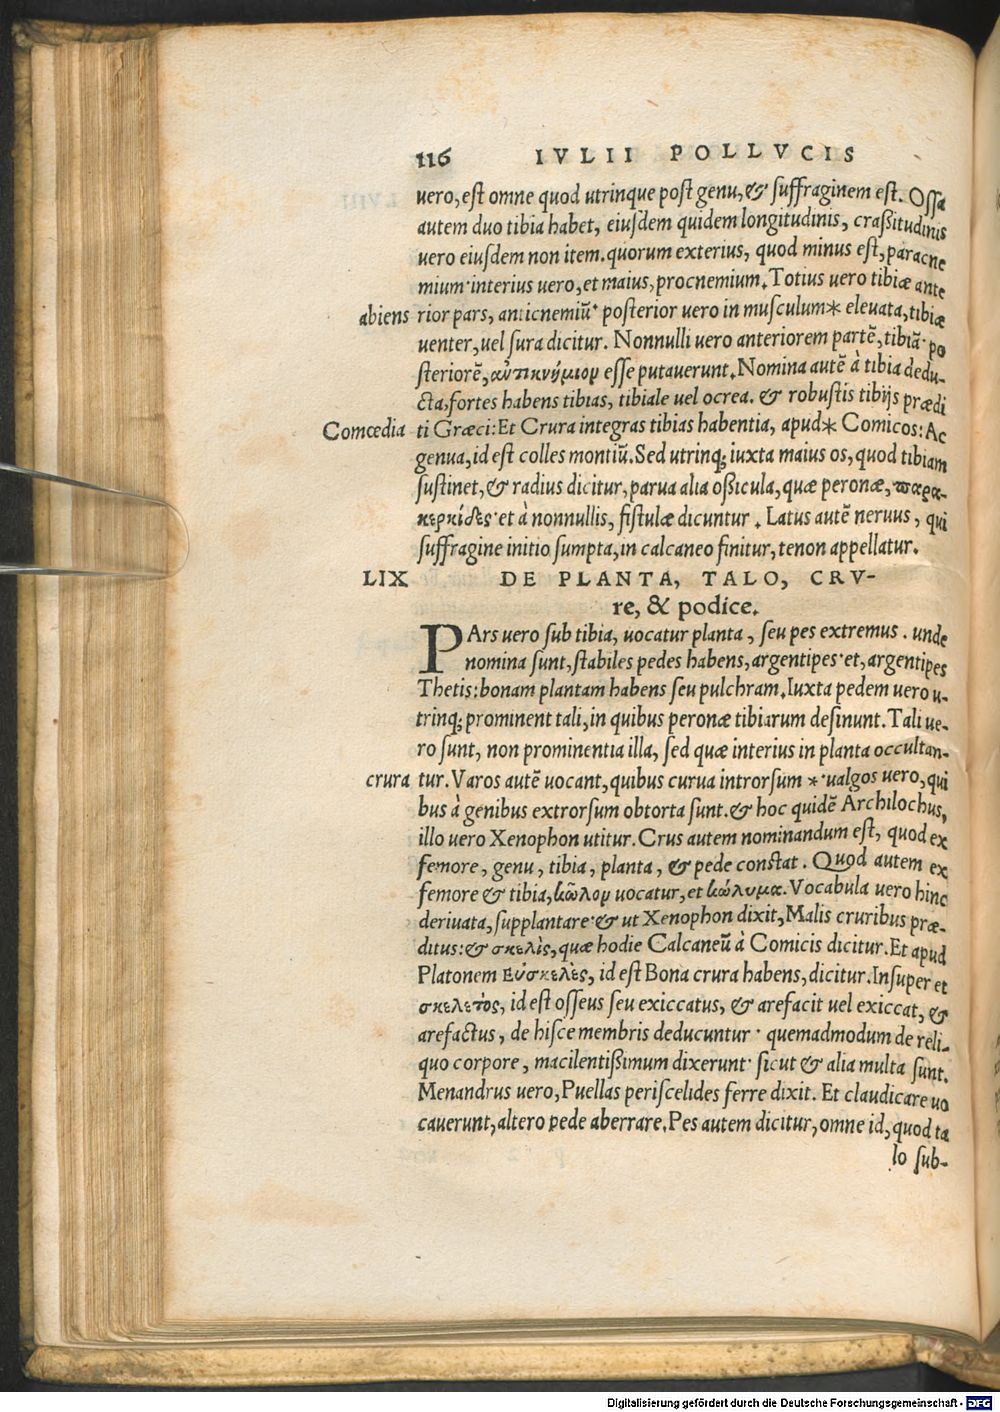 116 IVLII POLLVCIS
uero, est omne quod utrinque post genu, & suffraginem est. Ossa
autem duo tibia habet, eiusdem quidem longitudinis, craßitudinis
uero eiusdem non item. quorum exterius, quod minus est, paracne
mium· interius uero, et maius, procnemium. Totius uero tibiæ ante
abiens rior pars, anticnemiũ· posterior uero in musculum* eleuata, tibiæ
uenter, uel sura dicitur. Nonnulli uero anteriorem partẽ, tibiã· po
steriorẽ, αὐτικνήμιον esse putauerunt. Nomina autẽ à tibia dedu-
cta, fortes habens tibias, tibiale uel ocrea. & robustis tibijs prædi
Comœdia ti Græci: Et Crura integras tibias habentia, apud* Comicos: Ac
genua, id est colles montiũ. Sed utrinq; iuxta maius os, quod tibiam
sustinet, & radius dicitur, parua alia oßicula, quæ peronæ, παρα-
κερκίδες· et à nonnullis, fistulæ dicuntur. Latus autẽ neruus, qui
suffragine initio sumpta, in calcaneo finitur, tenon appellatur.
LIX DE PLANTA, TALO, CRV-
re, & podice.
PArs uero sub tibia, uocatur planta, seu pes extremus. unde
nomina sunt, stabiles pedes habens, argentipes· et, argentipes
Thetis: bonam plantam habens seu pulchram. Iuxta pedem uero u-
trinq; prominent tali, in quibus peronæ tibiarum desinunt. Tali ue-
ro sunt, non prominentia illa, sed quæ interius in planta occultan-
crura tur. Varos autẽ uocant, quibus curua introrsum *· ualgos uero, qui
bus à genibus extrorsum obtorta sunt. & hoc quidẽ Archilochus,
illo uero Xenophon utitur. Crus autem nominandum est, quod ex
femore, genu, tibia, planta, & pede constat. Quod autem ex
femore & tibia, κῶλον uocatur, et κώλυμα. Vocabula uero hinc
deriuata, supplantare· & ut Xenophon dixit, Malis cruribus præ-
ditus: & σκελὶς, quæ hodie Calcaneũ à Comicis dicitur. Et apud
Platonem Εὐσκελὲς, id est Bona crura habens, dicitur. Insuper et
σκελετὸς, id est osseus seu exiccatus, & arefacit uel exiccat, &
arefactus, de hisce membris deducuntur· quemadmodum de reli-
quo corpore, macilentißimum dixerunt· sicut & alia multa sunt.
Menandrus uero, Puellas periscelides ferre dixit. Et claudicare uo
cauerunt, altero pede aberrare. Pes autem dicitur, omne id, quod ta
lo sub-
Digitalisierung gefördert durch die Deutsche Forschungsgemeinschaft - DFG